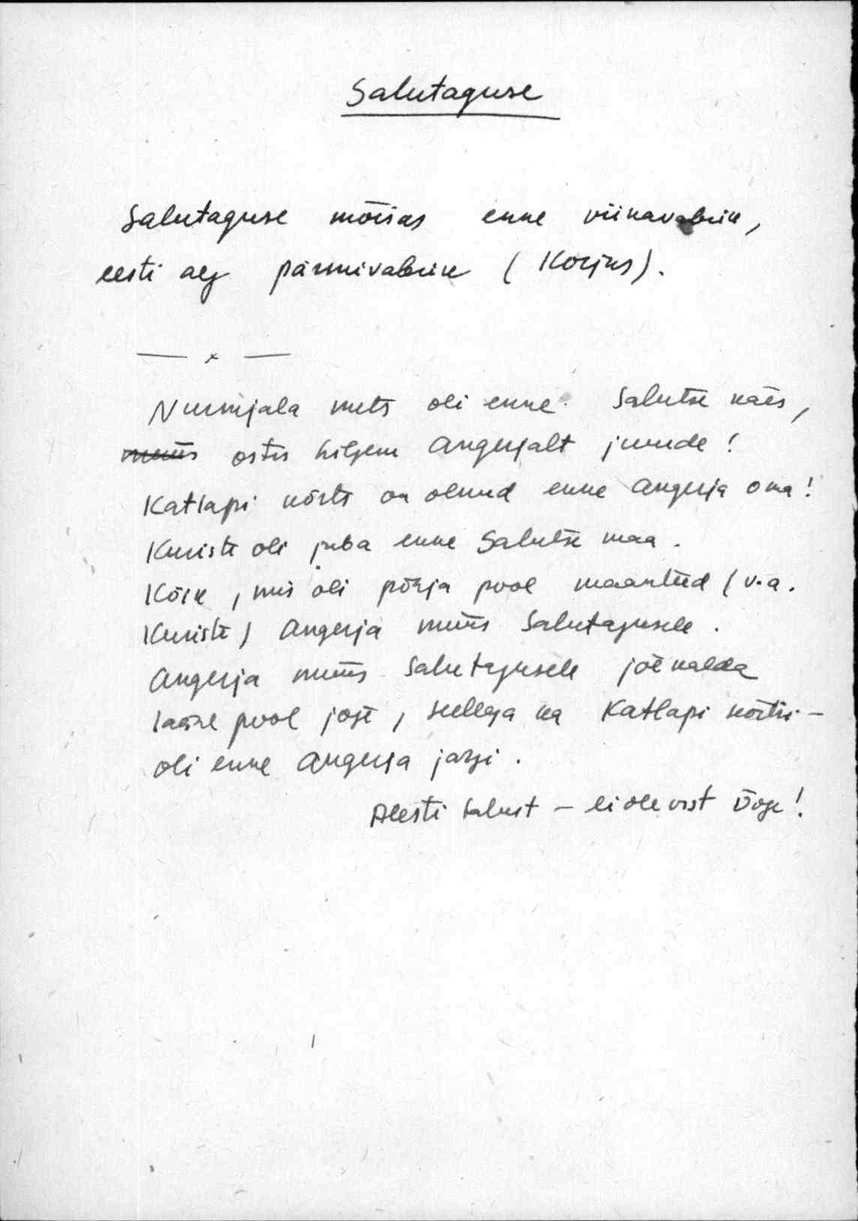 Salutaguse
Salutaguse mõisas enne viinavabrik,
eesti aeg pärmivabrik (Korjus).
— x —
Nurmjala mets oli enne Salutse käes,
müüs ostis hiljem Angerjalt juurde!
Katlapi kõrts on olnud enne Angerja oma!
Kuriste oli juba enne Salutse maa.
Kõik, mis oli põhja pool maanteed (v.a.
Kuriste) Angerja müüs Salutagusele.
Angerja müüs Salutagusele jõekalda
lääne pool jõge, sellega ka Katlapi kõrtsi –
oli enne Angerja järgi.
Alesti Salust – ei ole vist õige!